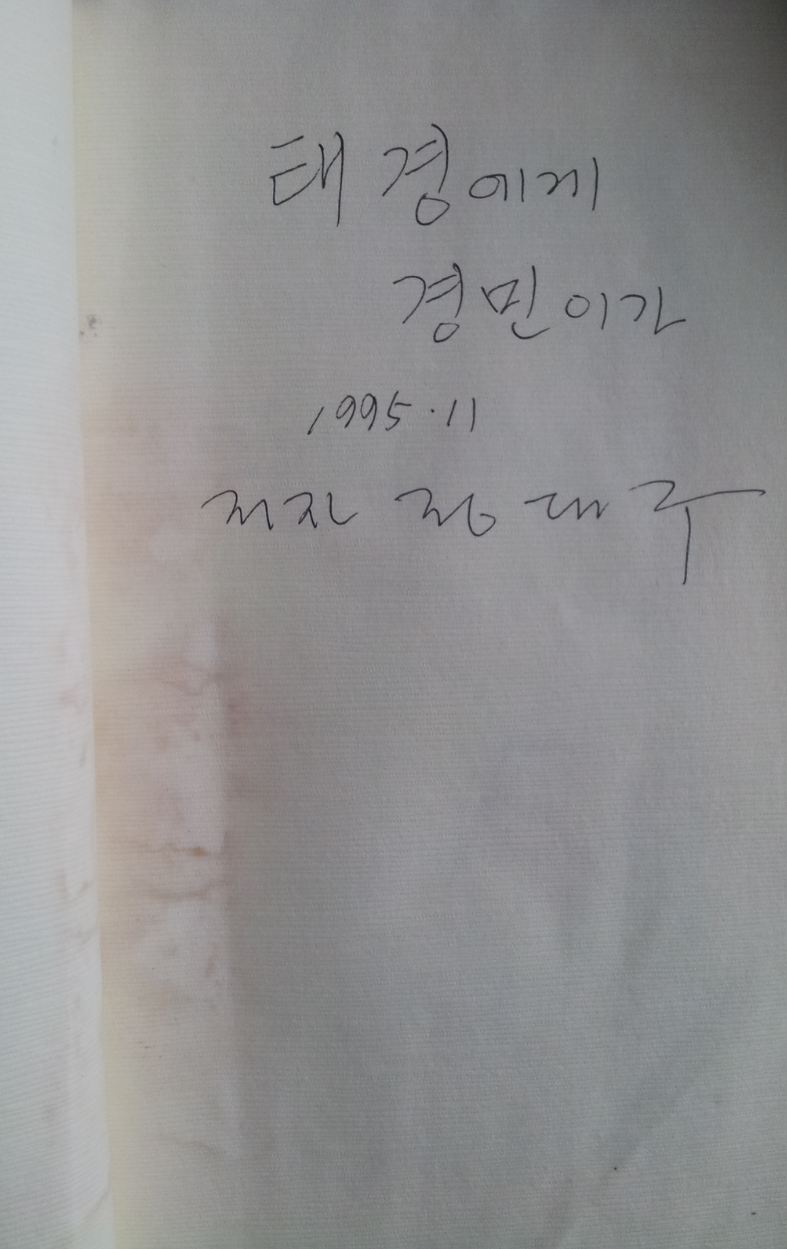 태경에게
경민이가
1995.11
저자 정대구